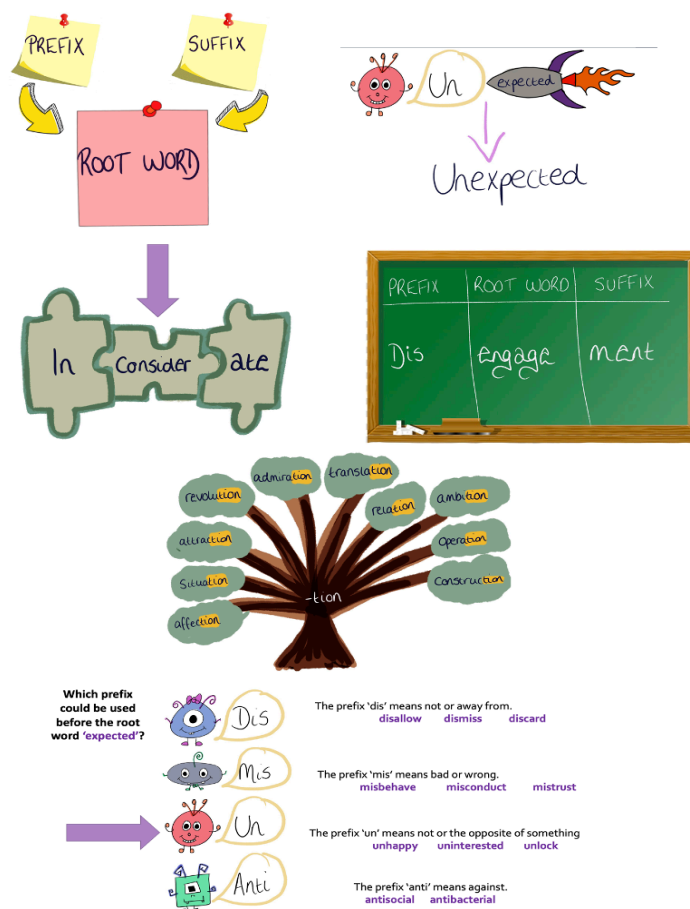 PREFIX
SUFFIX
ROOT WORD
Un
expected
Unexpected
In Consider ate
PREFIX ROOT WORD SUFFIX
Dis engage ment
admiration
translation
revolution
relation
ambition
attraction
operation
Situation
Construction
-tion
affection
Which prefix
could be used
before the root
word ‘expected’?
Dis
The prefix ‘dis’ means not or away from.
disallow dismiss discard
Mis
The prefix ‘mis’ means bad or wrong.
misbehave misconduct mistrust
Un
The prefix ‘un’ means not or the opposite of something
unhappy uninterested unlock
Anti
The prefix ‘anti’ means against.
antisocial antibacterial